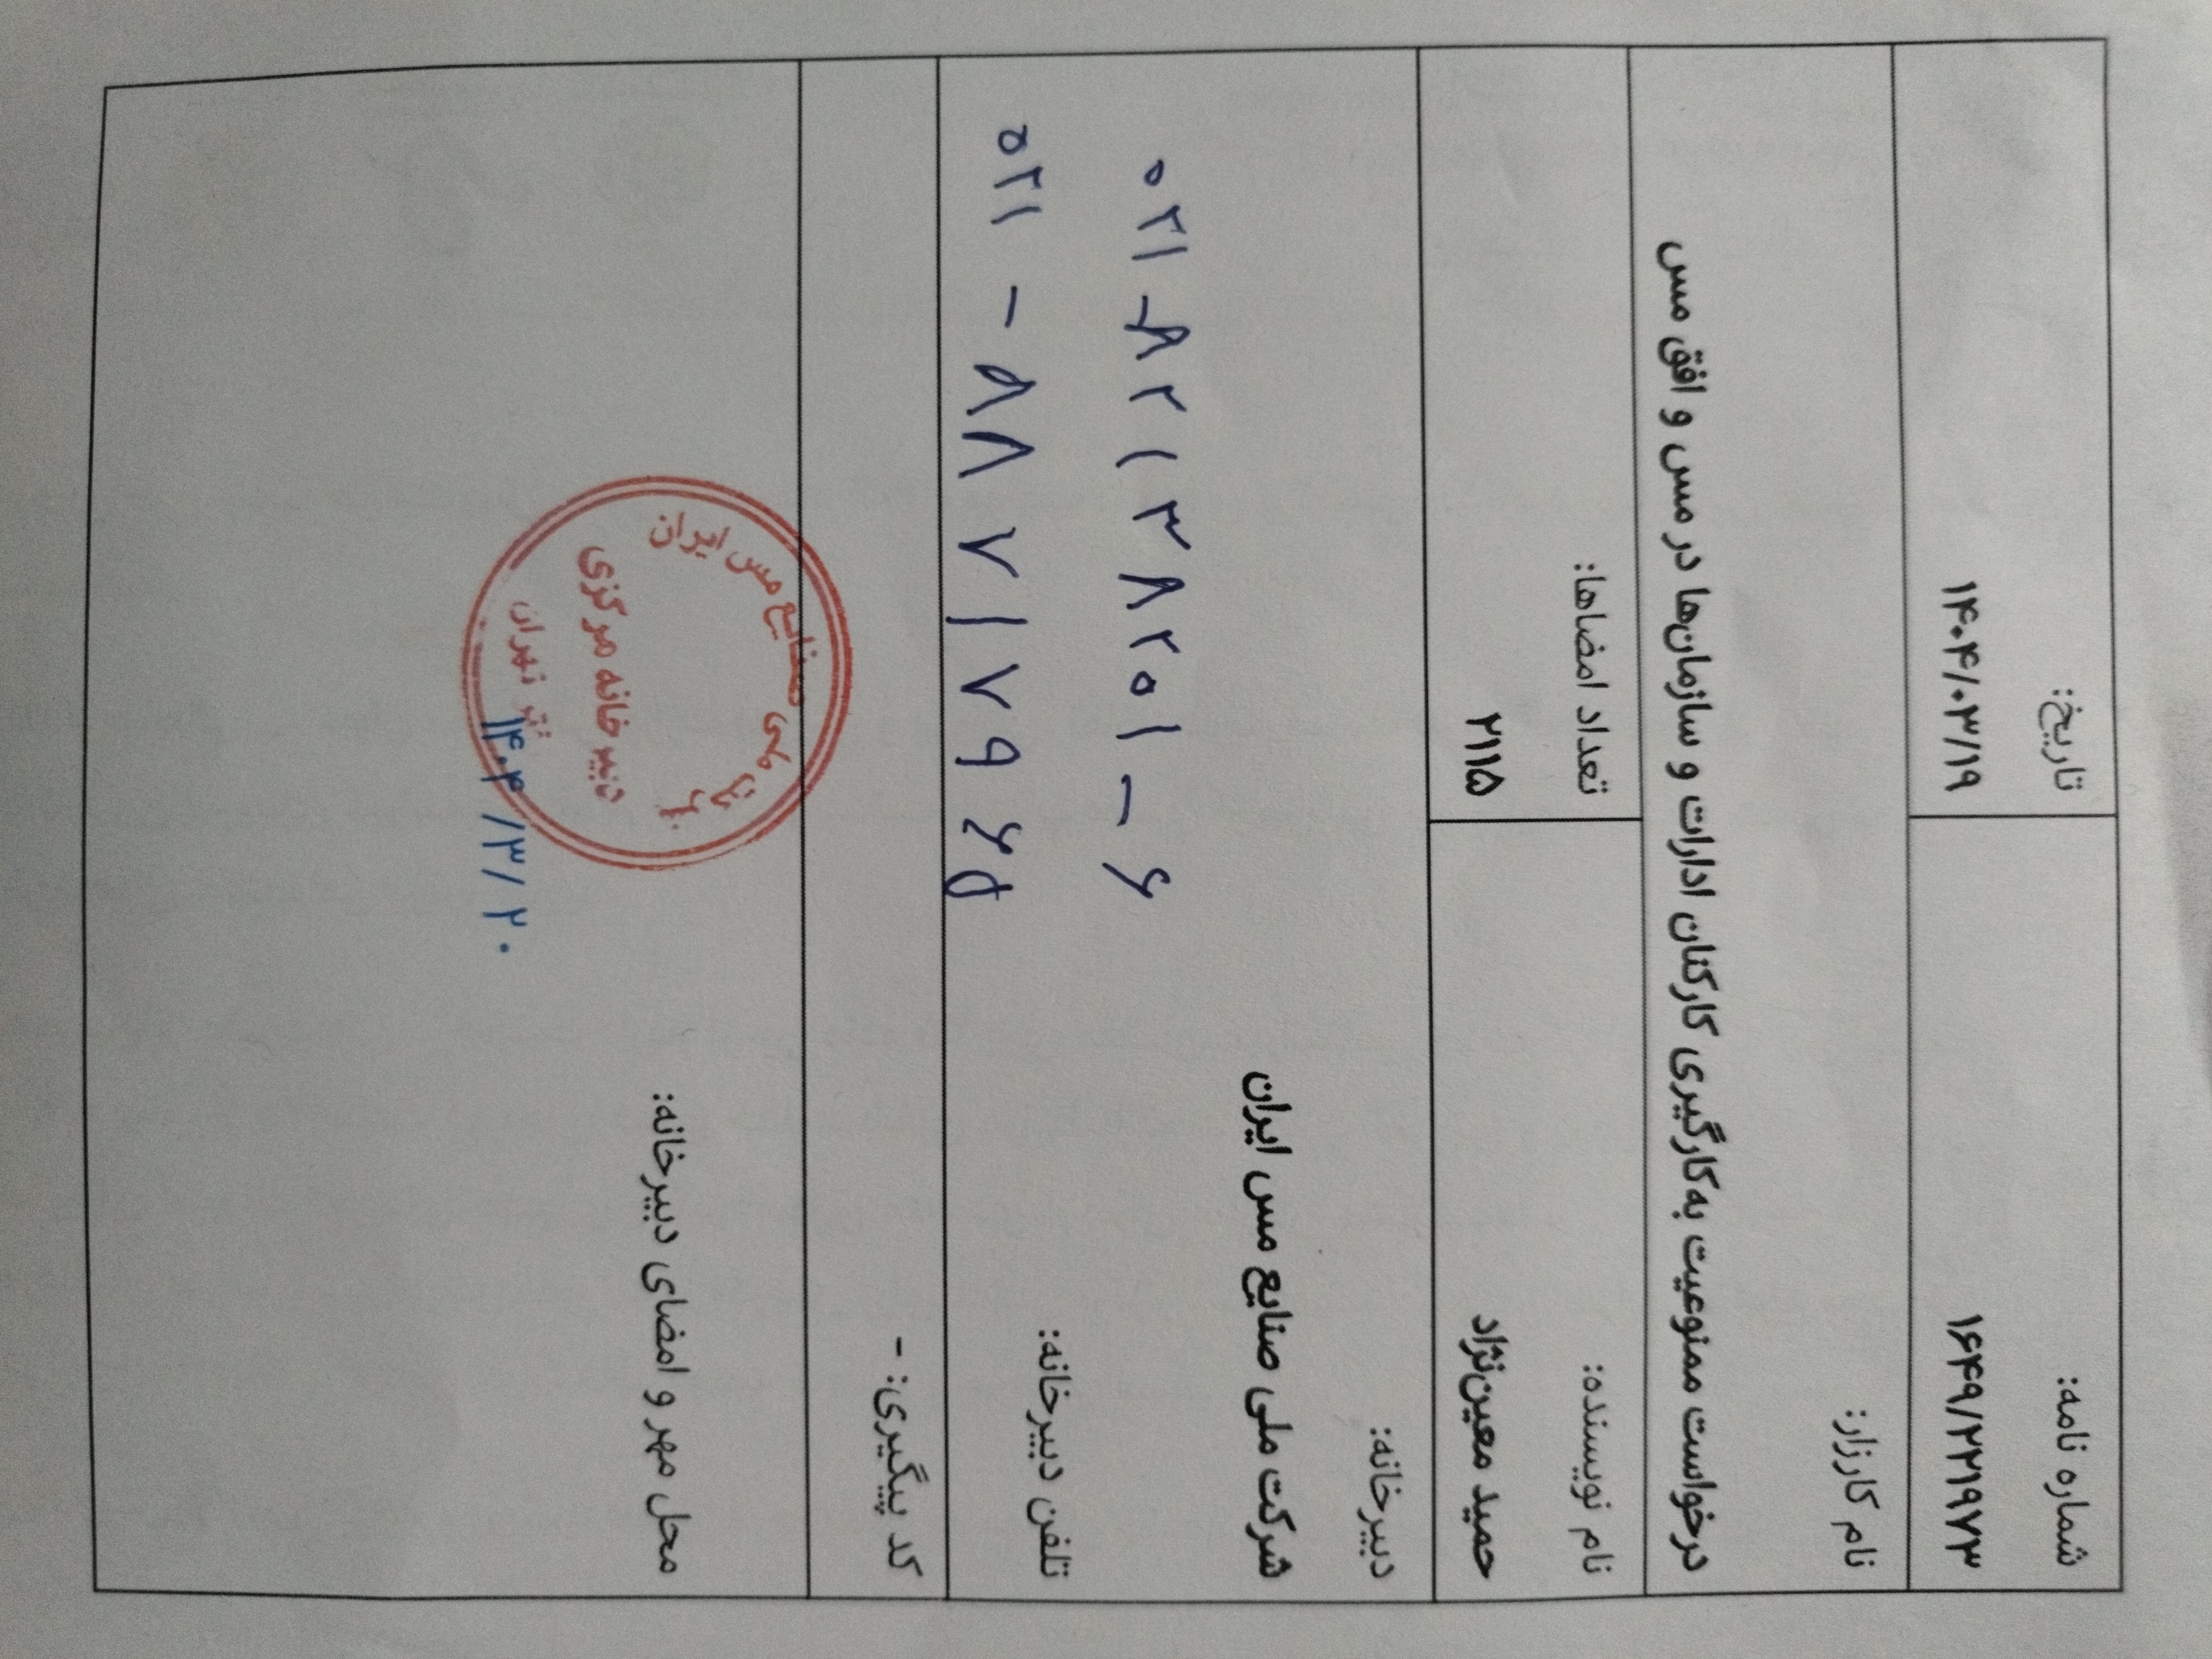 شماره نامه:
تاریخ:
۱۶۴۹/۲۲۱۹۷۳
۱۴۰۴/۰۳/۱۹
نام کارزار:
درخواست ممنوعیت به‌کارگیری کارکنان ادارات و سازمان‌ها در مس و افق مس
نام نویسنده:
تعداد امضاها:
حمید معین‌نژاد
۲۱۱۵
دبیرخانه:
شرکت ملی صنایع مس ایران
۰۲۱-۸۲۱۳۸۲۰۱-۶
تلفن دبیرخانه:
۰۲۱-۸۸۷۱۷۹۶۵
کد پیگیری: -
محل مهر و امضای دبیرخانه:
شرکت ملی صنایع مس ایران
دبیرخانه مرکزی
تهران
۱۴۰۴/۳/۲۰